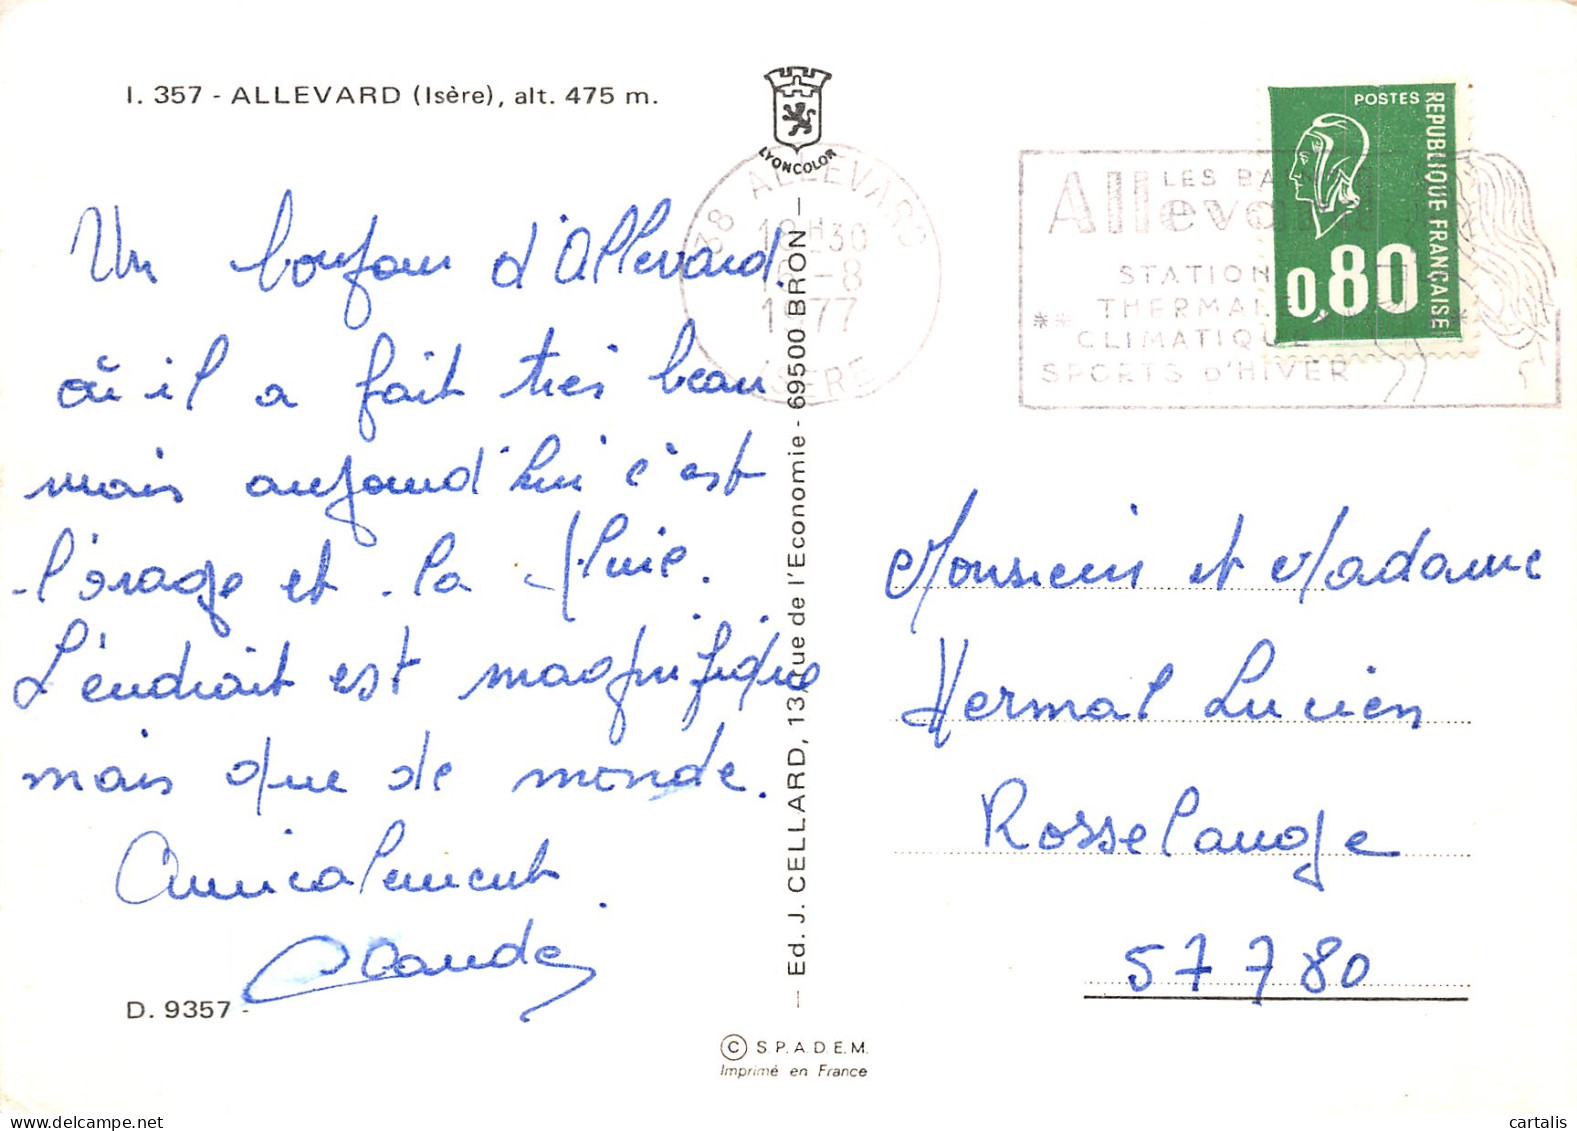 I. 357 - ALLEVARD (Isère), alt. 475 m.
LYONCOLOR
Un bonjour d'Allevard
où il a fait très beau
mais aujourd'hui c'est
l'orage et la pluie.
L'endroit est magnifique
mais que de monde.
Amicalement
Claude
D. 9357 -
38 ALLEVARD
18H30
16-8
1977
ISÈRE
LES BAINS
Allevard
STATION
THERMALE
** CLIMATIQUE *
SPORTS D'HIVER
POSTES
REPUBLIQUE FRANÇAISE
0,80
— Ed. J. CELLARD, 13, rue de l'Economie - 69500 BRON —
Monsieur et Madame
Hermal Lucien
Rosselange
57780
© S.P.A.D.E.M.
Imprimé en France
cartalis